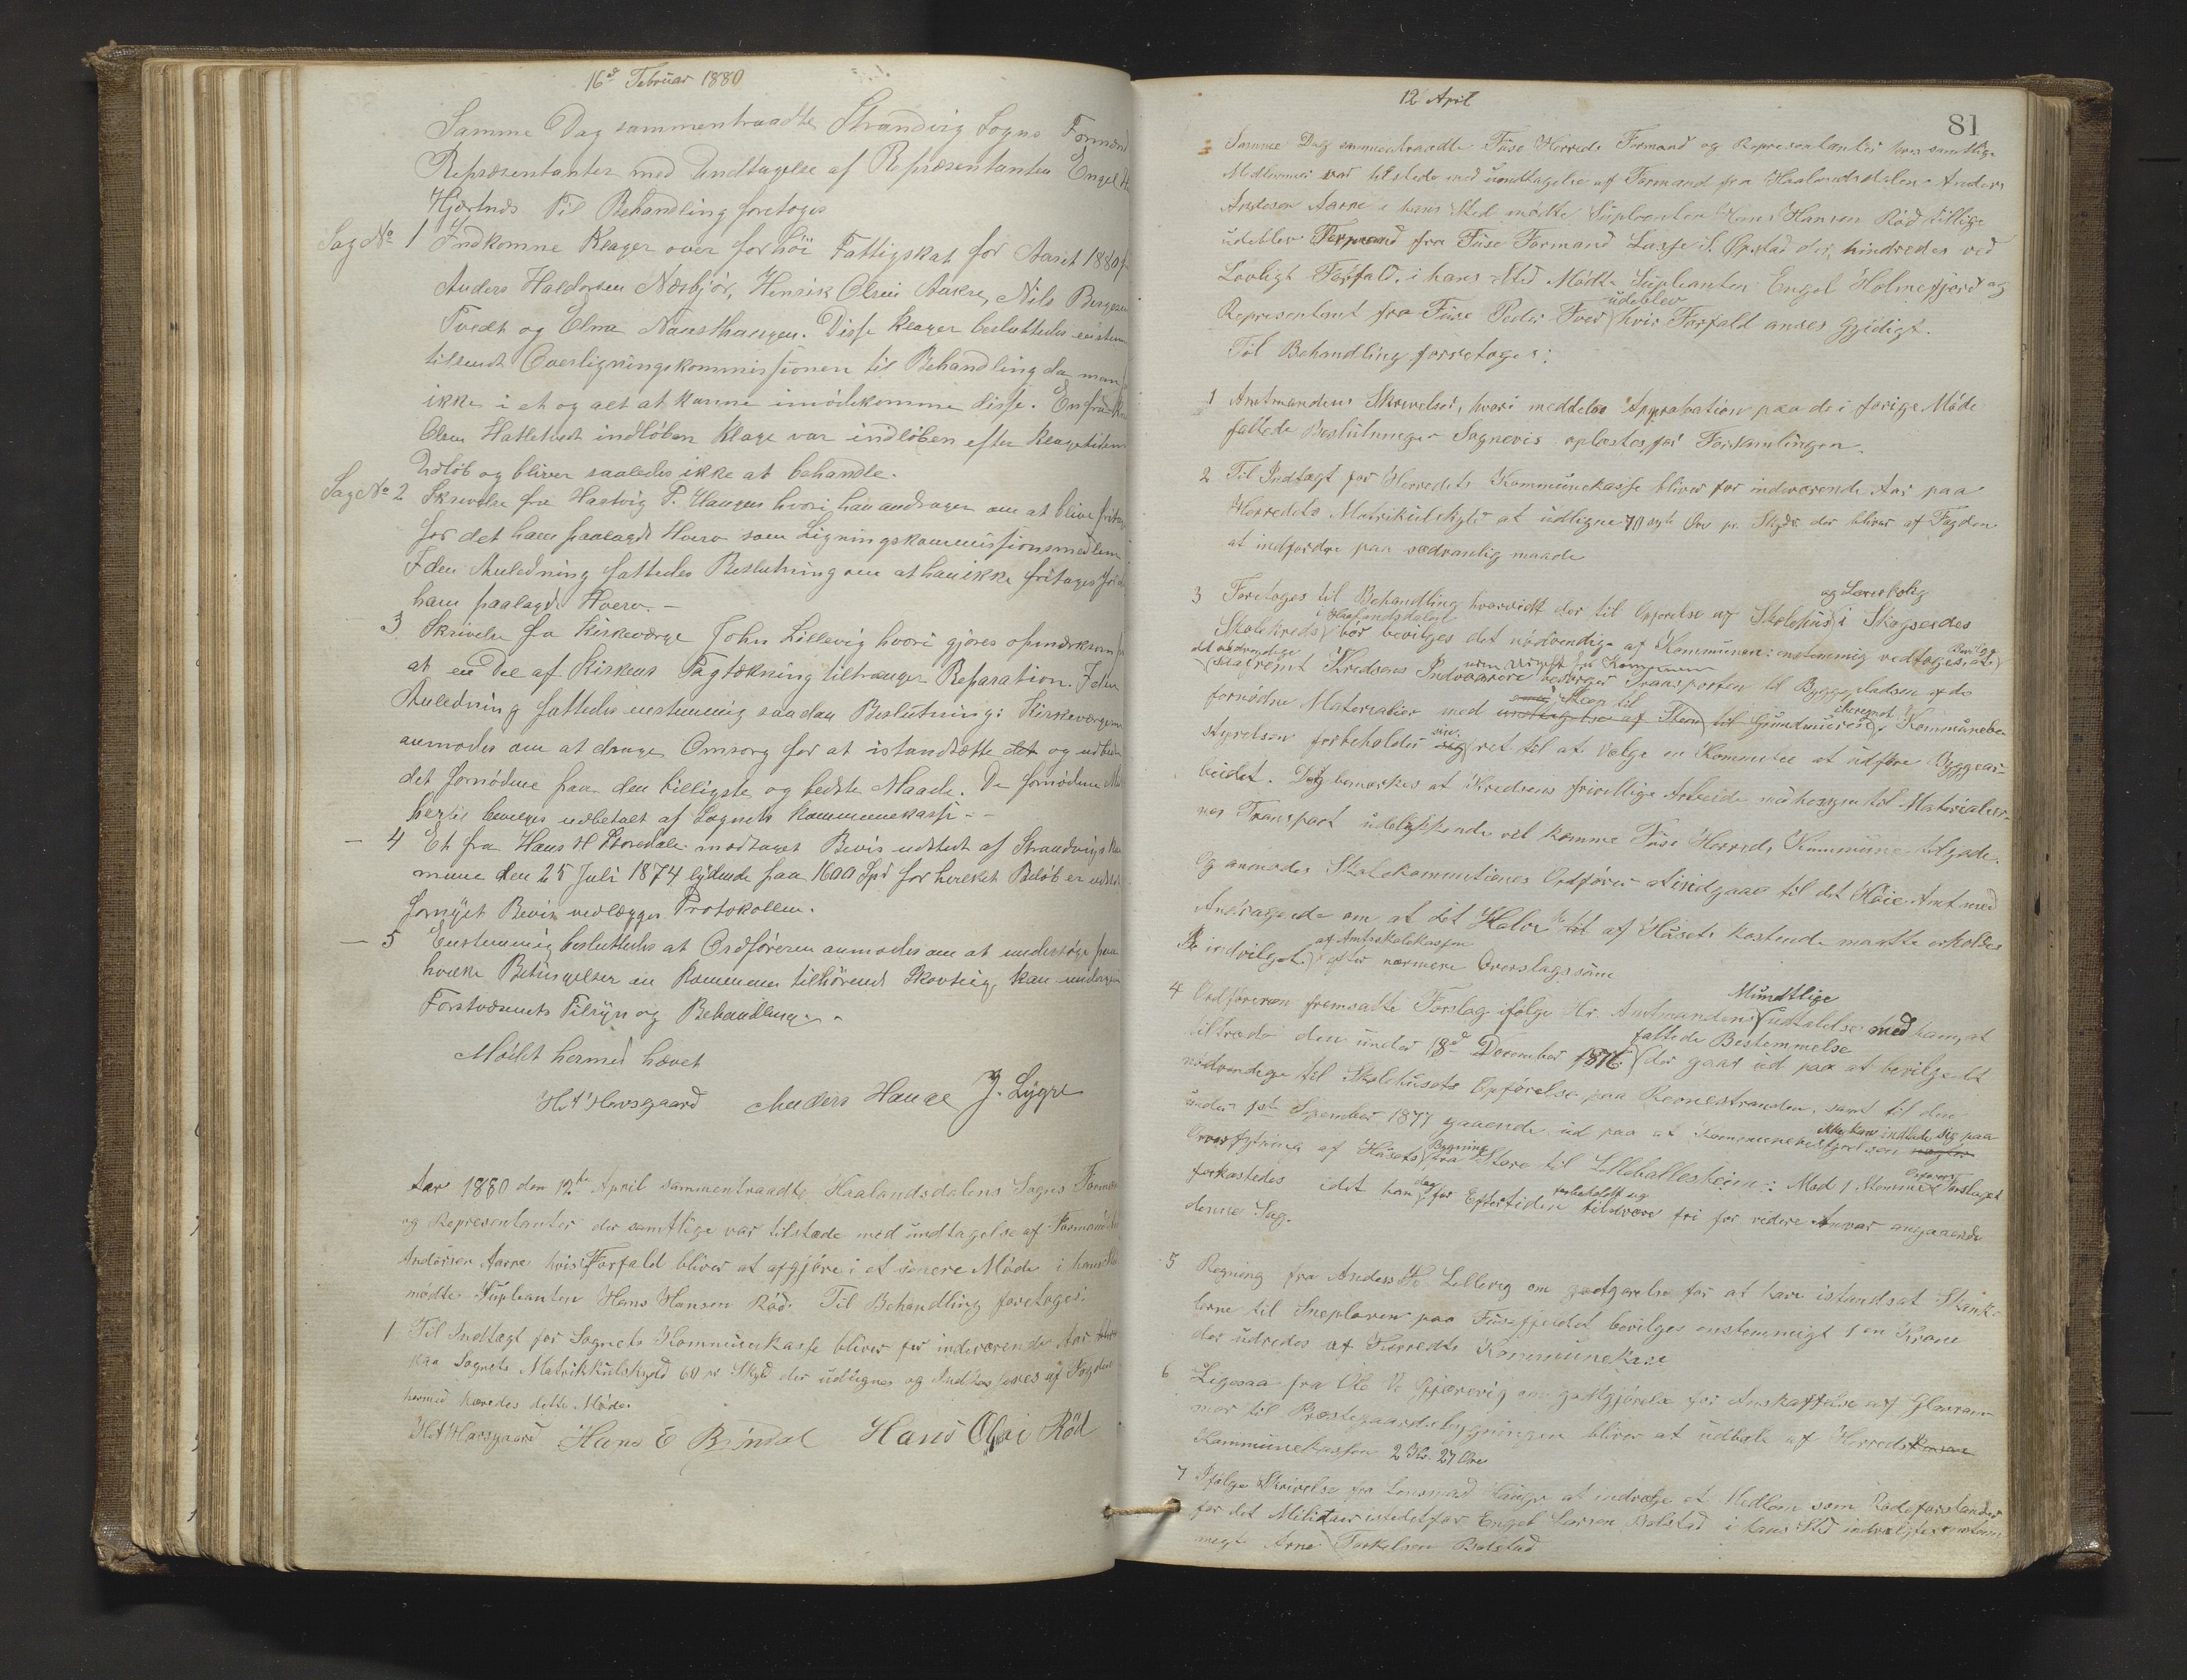 16de Februar 1880
Samme Dag sammentraadte Strandvig Sogns Formænd
Repræsentanter med Undtagelse af Repræsentanten Engel H
Hjærtnæs Til Behandling foretoges
Sag No 1 Indkomne Klager over for höi Fattigskat for Aaret 1880 f
Anders Haldorsen Næsbjör, Henrik Olsen Aakre, Nils Bergesen
Tvedt og Elna Naasthaugen. Disse klager besluttedes enstem
tilsendt Overligningskommissionen til Behandling da man
ikke i et og alt at kunne imödekomme disse. En fra
Olsen Hatletvedt indlöben Klage var indlöben efter Klagetiden
Udløb og bliver saaledes ikke at behandle.
Sag No 2 Skrivelse fra Hartvig P. Haugen hvori han andrager om at blive frita
for det ham paalagde Hverv som Ligningskommissionsmedlem
I den Anledning fattedes Beslutning om at han ikke fritages for
ham paalagde Hverv. —
3 Skrivelse fra Kirkeværge John Lillevig hvori gjöres opmærksom
at en Del af Kirkens Tagtækning tiltrænger Reparation. I den
Anledning fattedes enstemmig saadan Beslutning: Kirkeværgen
anmodes om at drage Omsorg for at istandsætte det og udbed
det fornödne paa den billigste og bedste Maade. De fornödne M
hertil bevilges udbetalt af Sognets kommunekasse - -
— 4 Et fra Hans H modtaget Bevis udstedt af Strandvigs K
mune den 25 Juli 1874 lydende paa 1600 Spd for hvilket Belöb er udsted
fornyet Bevis vedlægges Protokollen.
— 5 Enstemmig besluttedes at Ordföreren anmodes om at undersöge paa
hvilke Betingelser en Kommunen tilhörende Skovteig kan undergives
Forstvæsenets Tilsyn og Behandling. -
Mödet hermed hævet
H A Havsgaard Anders Hauge J. Lygre
Aar 1880 den 12te April sammentraadte Haalandsdalens Sogns Formæn
og Representanter der samtlige var tilstæde med undtagelse af Formand
Andersen Aarre hvis Forfald bliver at afgjöre i et senere Möde i hans St
mödte Supleanten Hans Hansen Röd. Til Behandling foretoges:
1 Til Indtægt for Sognets Kommunekasse bliver for indeværende Aar
paa Sognets Matrikkulskyld 60 pr Skyld der udlignes og Indkasseres af Fogden
hermed hævedes dette Möde.
H A Havsgaard Hans E Brindal Hans Olai Röd
12 April
81
Samme Dag sammentraadte Fuse Herreds Formænd og Representanter hvor samtlige
Medlemmer var tilstede med undtagelse af Formand fra Haalandsdalen Anders
Andersen Aarre i hans Sted mödte Supleanten Hans Hansen Röd tillige
udeblev Formand fra Fuse Formand Lasse S. Opstad der, hindredes ved
Lovligt Forfald, i hans Sted Mödte Supleanten Engel Holmefjord og
udeblev
Representant fra Fuse Peder Tved hvis Forfald anses Gyldigt.
Til Behandling foretoges:
1 Amtmandens Skrivelse, hvori meddeles Approbation paa de i forige Möde
fattede Beslutninger Sognevis oplæstes for Forsamlingen.
2 Til Indtægt for Herredets Kommunekasse bliver for indeværende Aar paa
Herredets Matrikulskyld at udligne 70 syti Öre pr. Skyldr. der bliver af Fogden
at indfordre paa sædvanlig maade
og Lærerbolig
3 Foretoges til Behandling hvorvidt der til Opförelse af Skolehus i Skogseides
i Haalandsdalen
Skolekreds bör bevilges det nödvendige af Kommunen: enstemmig vedtoges, at
det nödvendige
saafremt Kredsens Indvaanere besörger Transporten til Byggepladsen af de
fornødne Materialier med undtagelse af Sten til Grundmuren, Kommunebe-
styrelsen forbeholder sig ret til at vælge en Kommitee at udföre Byggear-
beidet. Dog bemærkes at Kredsens frivillige Arbeide med hensyn til Materialier-
nes Transport udelukkende vil komme Fuse Herreds Kommune tilgode.
Og anmodes Skolekommitionens Ordförer at indgaae til det Höie Amt med
Andragende om at det Halve af Husets kostende maatte erholdes
af Amtsskolekassen
indvilget efter nærmere Overslagssum
Mundtlige
4 Ordföreren fremsatte Forslag ifölge Hr. Amtmandens udtalelse med ham, at
fattede Bestemmelse
tiltræde den under 18de December 1876 der gaar ud paa at bevilge det
nödvendige til Skolehusets Opförelse paa Revnestranden, samt til den
under 1ste September 1877 gaaende ud paa at Kommunebestyrelsen
ikke kan indlade sig paa
Bygning
Overflytning af Husets fra Store til Lilleballesheim: Mod 1 Stemme Forslaget
forkastedes idet han dog for Eftertiden forbeholdt sig tilværre fri for videre Anvar angaaende
denne Sag.
5 Regning fra Anders H. Lillevig om godtgjørelse for at have istandsat Skank-
lerne til Sneploven paa Fusefjeldet bevilges enstemmigt 1 en Krone
der udredes af Herredts Kommunekase
6 Ligesaa fra Ole Gjærevig om godtgjörelse for Anskaffelse af Glasram-
mer til Præstegaardsbygningen bliver at udbetale af Herreds
Kommunekassen 2 Kr. 27 Öre
7 Ifölge Skrivelse fra Lensmand Hauge at indvælge et Medlem som Rodeforstander
for det Militær istedetfor Engel Larsen Bolstad i hans Sted indvalgtes enstem-
migt Arne Torkelsen Bolstad